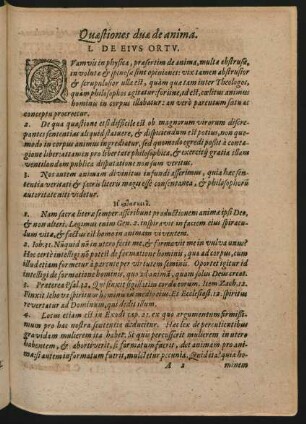 Quæstiones duæ de anima.
I. DE EIVS ORTV.
QVamvis in physica, præsertim de anima, multæ obstrusæ,
involutæ & spinosæ sint opiniones: vix tamen abstrusior
& scrupulosior ulla est, quàm quæ tam inter Theologos,
quàm philosophos agitatur foriùs, ad est, cœlitus animus
homini in corpus illabatur: an verò parentum satu ac
conceptu procreetur.
2. De qua quæstione etsi difficile est ob magnorum virorum discre-
pantes sententias aliquid statuere, & disficiendum est potius, non quo-
modo in corpus anima ingrediatur, sed quomodo egredi possit à conta-
gione libera: tamen pro libertate philosophica, & exercitÿ gratia etiam
ventilandum publica disputatione maximè venimus.
3. Nos autem animam divinitus infundi asserimus, quia hæc sen-
tentia veritati & sacris literis magis esse consentanea, & philosophorũ
autoritate niti videtur.
1. Nam sacræ literæ semper asscribunt productionem animæ ipsi Deo,
& non alteri. Legimus enim Gen. 2. inspiravit in faciem ejus spiracu-
lum vitæ, & factus est homo in animam viventem.
2. Iob. 31. Nũquid nõ in utero fecit me, & formavit me in vulva unus?
Hoc certè intelligi nõ potest de formatione hominis, quo ad corpus, cum
illud etiam formetur à parente per virtutem seminis. Oportet igitur id
intelligi de formatione hominis, quo ad animã, quam solus Deus creat.
3. Præterea Psal. 32. Qui finxit singulatim corda eorum. Item Zach. 12.
Finxit Iehova spiritum hominis in medio ejus. Et Ecclesiast. 12. spiritus
revertatur ad Dominum, qui dedit illum.
4. Locus etiam est in Exodi cap. 21. ex quo argumentum firmissi-
mum pro hac nostra sententia deducitur. Hæc lex de percutientibus
gravidam mulierem ita habet. Si quis percusserit mulierem in utero
habentem, & abortiverit, si formatum fuerit, det animam pro ani-
ma: si autem informatum fuerit, multetur pecunia. Quid ita? quia ho-
A 2 minem